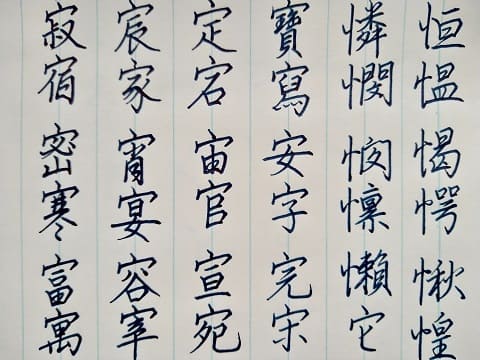 恒愠愒愕愀惶
憐憫懍懶它
寶寫安字完宋
定宕宙官宣宛
宸家宵宴容宰
寂宿密寒富寓